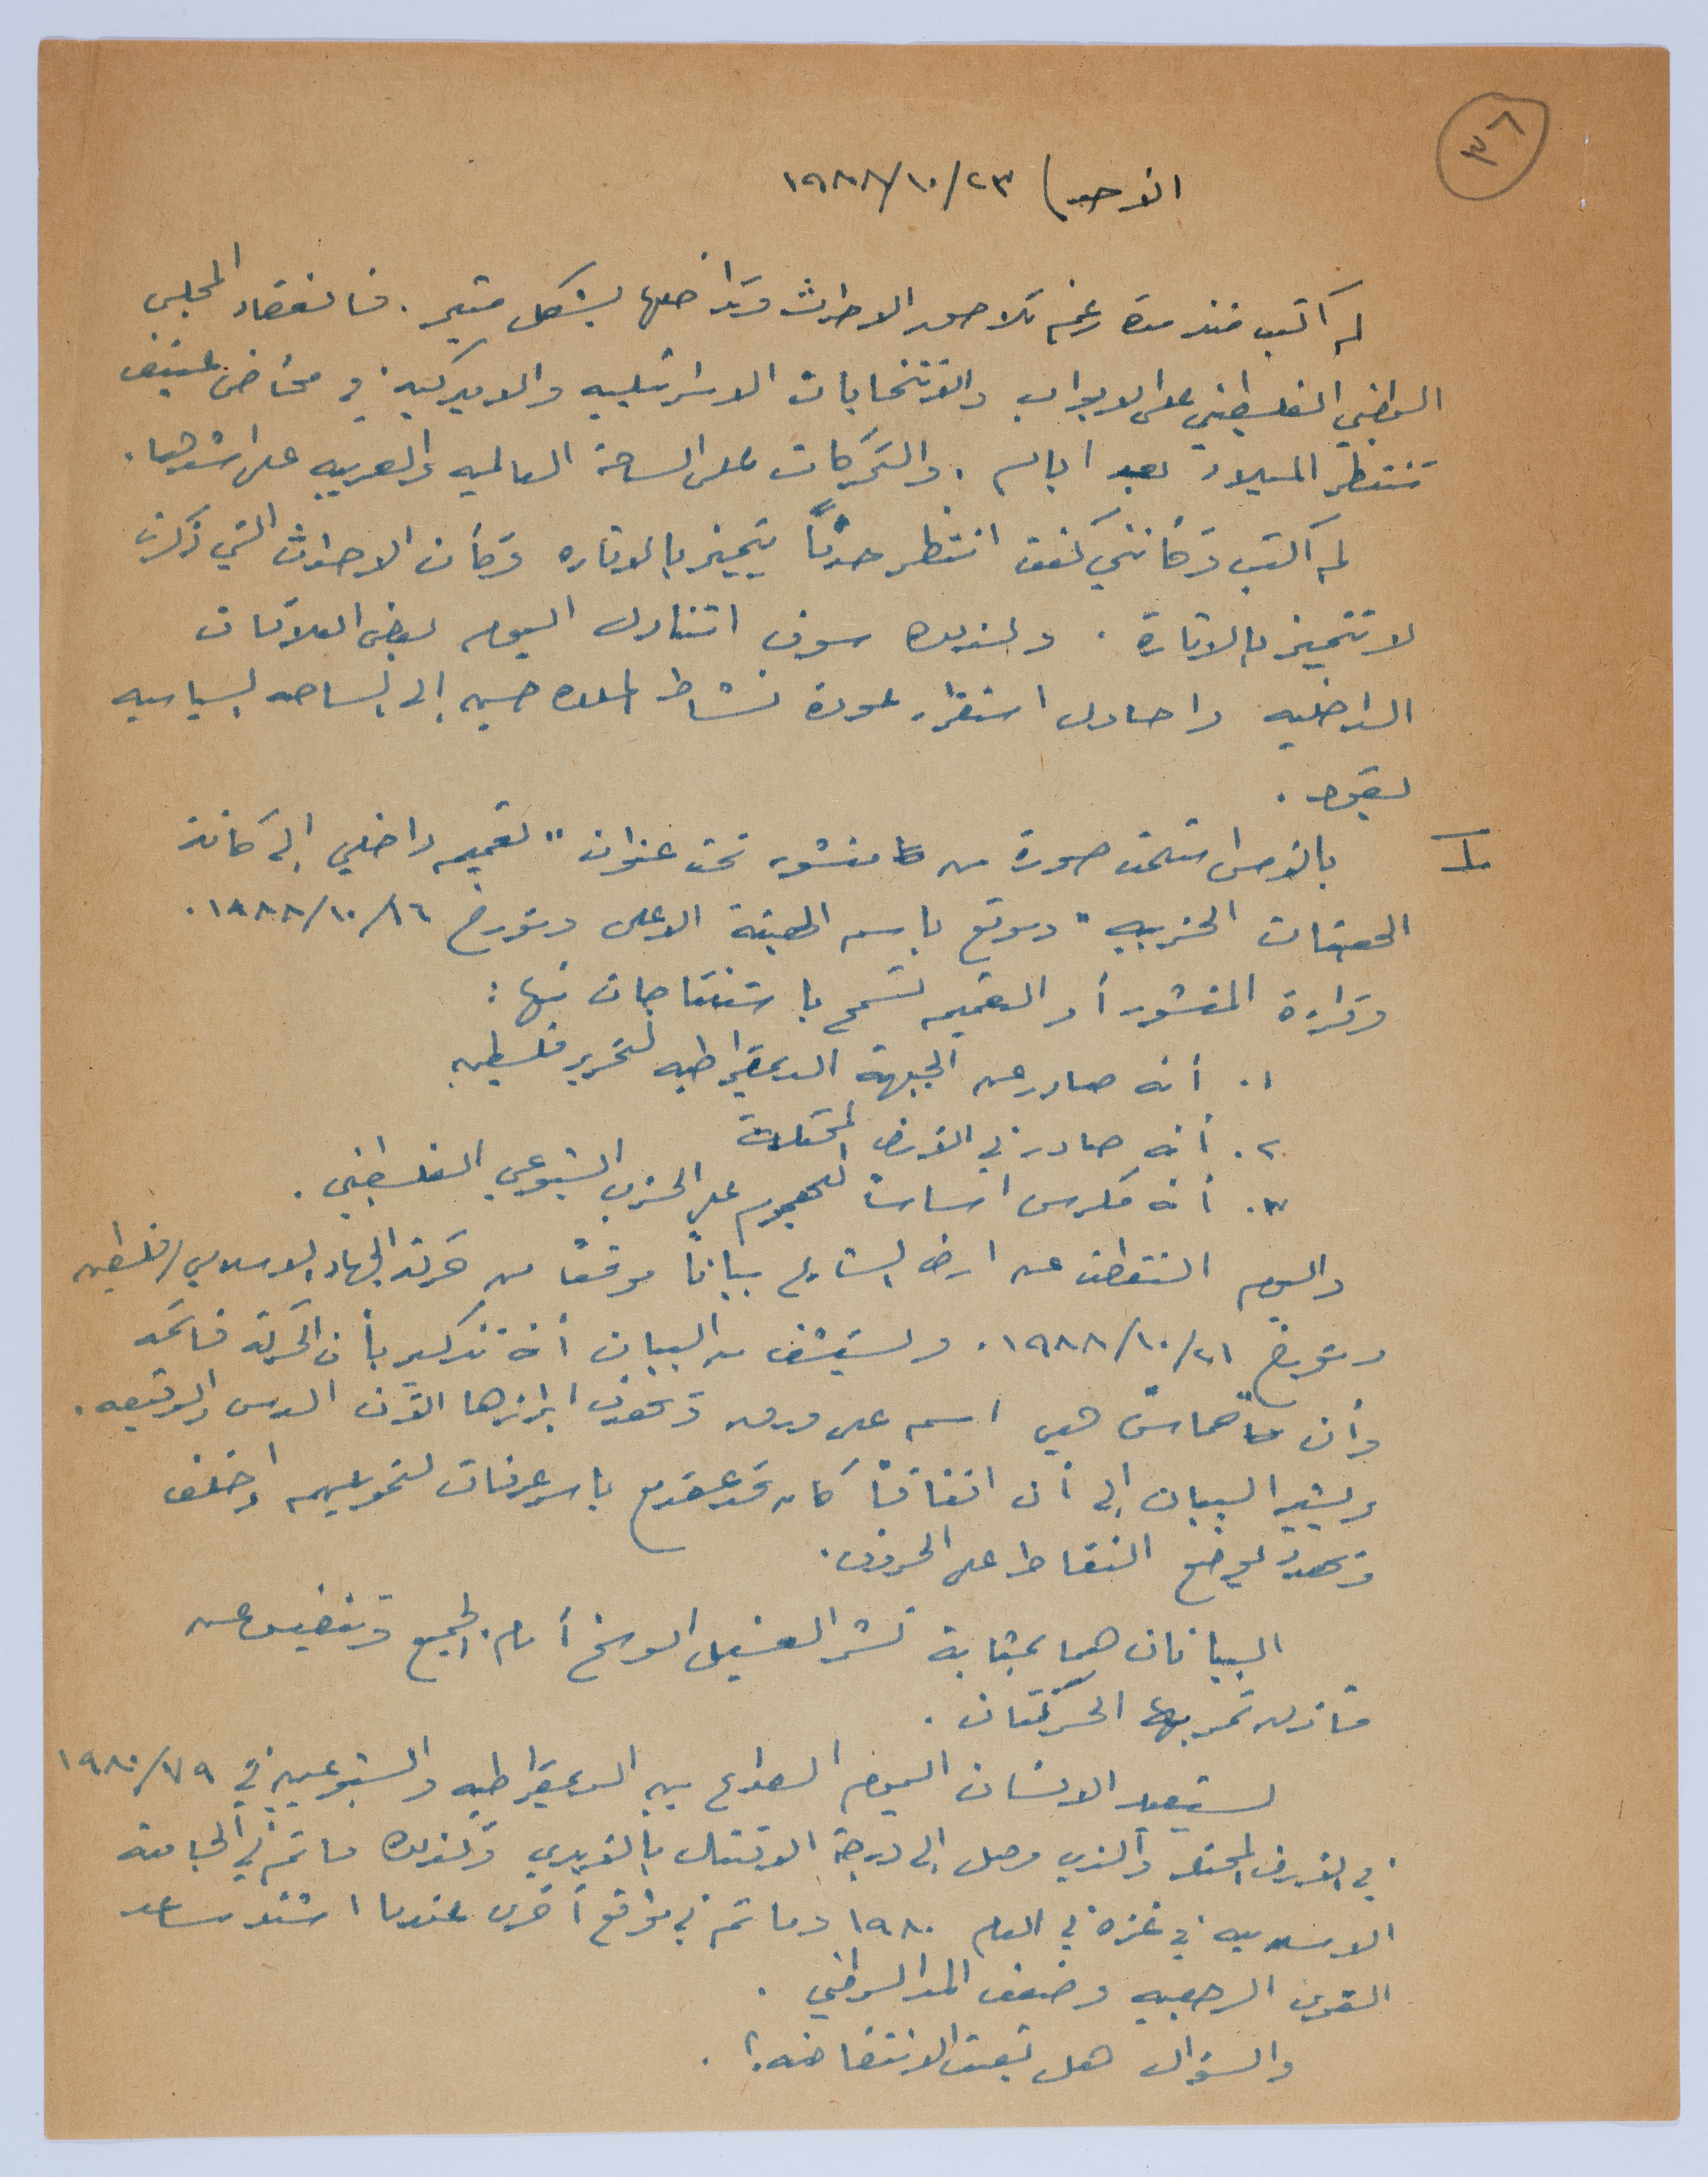 ٣٨
الاحد) ٢٣/١٠/١٩٨٨
لم أكتب منذ مدة رغم تلاحق الاحداث وتداخلها بشكل مثير. فانعقاد المجلس
الوطني الفلسطيني على الابواب والانتخابات الاسرائيليه والاميركيه في مخاض عنيف
تنتظر الميلاد بعد ايام. والتحركات على الساحة العالميه والعربيه على اشدها.
لم اكتب وكأنني كنت انتظر حدثاً يتميز بالاثاره وكأن الاحداث التي ذكرت
لا تتميز بالاثارة. ولذلك سوف اتناول اليوم بعض العلاقات
الداخليه واحاول استقراء عودة نشاط الملك حسين إلى الساحه السياسيه
بقوه.
I بالامس استلمت صورة من منشور تحت عنوان "تعميم داخلي إلى كافة
الهيئات الحزبيه" وموقع باسم الهيئة الاعلى ومؤرخ ١٦/١٠/١٩٨٨.
وقراءة المنشور أو التعميم تسمح باستنتاجات منها:
١. أنه صادر عن الجبهة الديمقراطيه لتحرير فلسطين
٢. أنه صادر في الارض المحتلة
٣. أنه مكرس اساسا للهجوم على الحزب الشيوعي الفلسطيني.
واليوم التقطت عن ارض الشارع بياناً موقعاً من حركة الجهاد الاسلامي/فلسطين
ومؤرخ ٢١/١٠/١٩٨٨. ويستشف من البيان أنه تذكير بأن الحركة قائمة
وأن "حماس" هي اسم على ورق وتهدف ابرازها الآن الدس والوقيعه.
ويشير البيان إلى أن اتفاقاً كان قد عقد مع ياسر عرفات لتمويلهم واخلف
وتهدد بوضع النقاط على الحروف.
البيانان هما بمثابة نشر الغسيل الوسخ أمام الجميع وتنفيس عن
مآزق تمر بها الحركتان.
يستعيد الانسان اليوم الصراع بين الديمقراطيه والشيوعيين في ٧٩/١٩٨٠
في الارض المحتله والذي وصل إلى درجة الاقتتال بالايدي وكذلك ما تم في الجامعة
الاسلاميه في غزه في العام ١٩٨٠ وما تم في مواقع أخرى عندما اشتد ساعد
القوى الرجعيه وضعف المد الوطني.
والسؤال هل تعبت الانتفاضه؟.